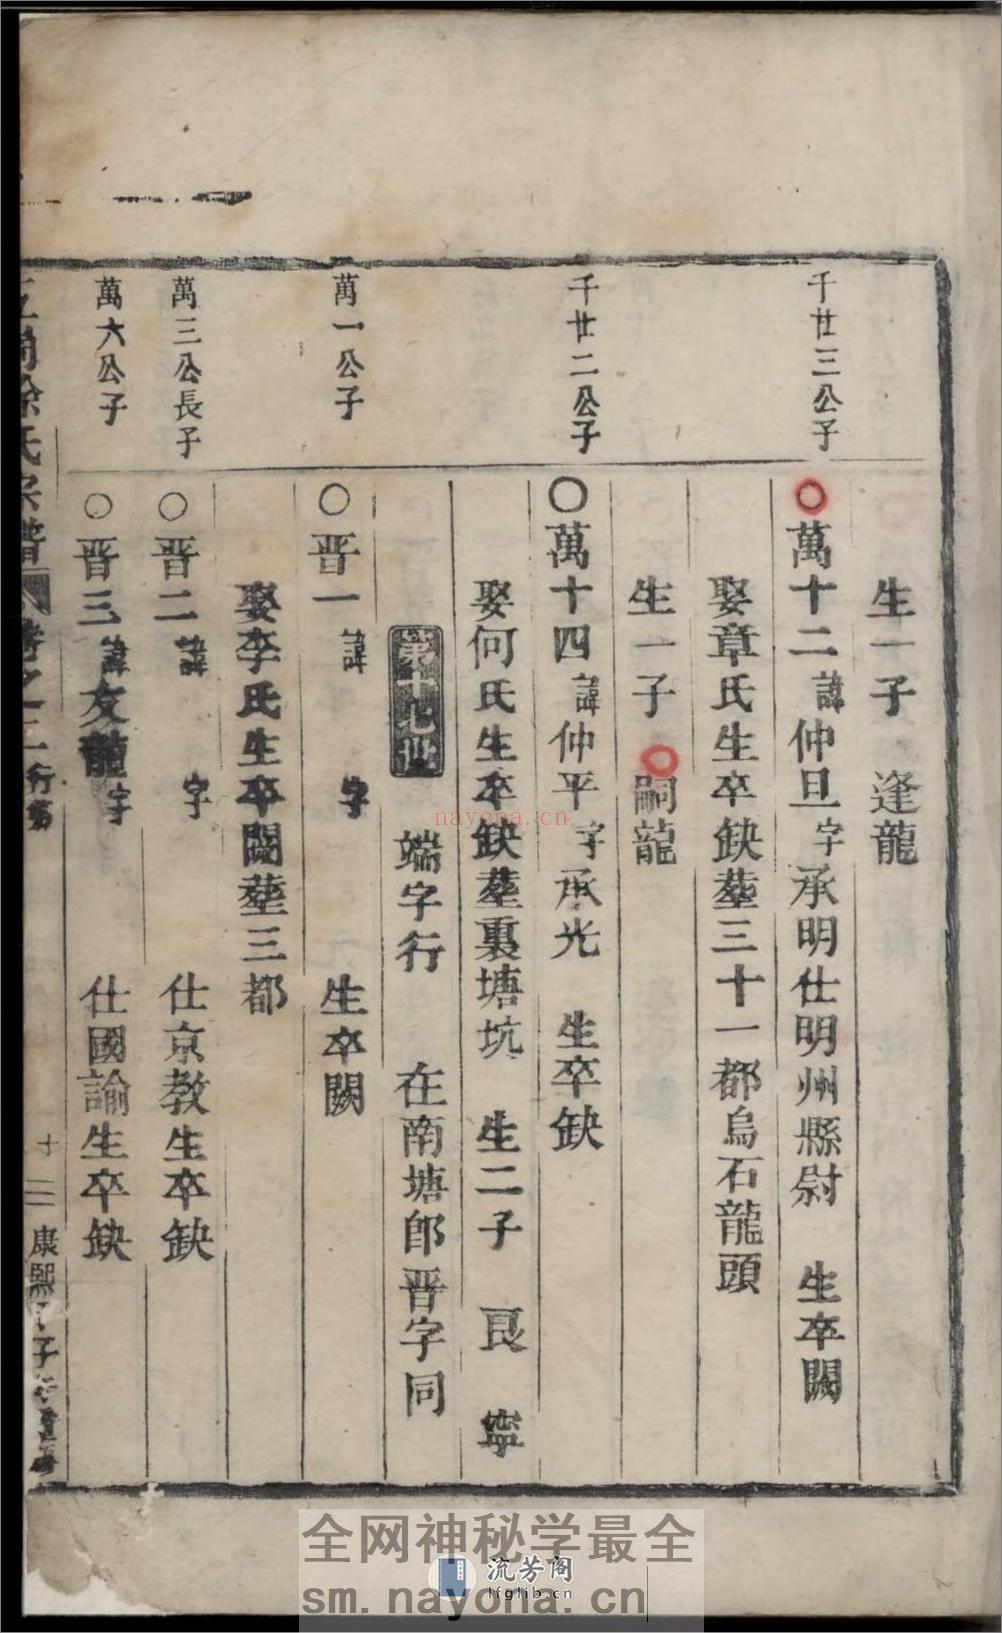 生一子 逢龍
千廿三公子
○萬十二諱仲旦字承明仕明州縣尉 生卒闕
娶章氏生卒缺塟三十一都烏石龍頭
生一子 嗣龍
千廿二公子
○萬十四諱仲平字承光 生卒缺
娶何氏生卒缺塟裏塘坑 生二子 艮 寧
第十七世 端字行 在南塘郎晋字同
萬一公子
○晋一諱 字 生卒闕
娶李氏生卒闕塟三都
萬三公長子
○晋二諱 字 仕京教生卒缺
萬六公子
○晋三諱友龍字 仕國諭生卒缺
徐氏宗譜 卷之二行第 十二 康熙 子
nayona.cn
全网神秘学最全
流芳阁
lfglib.cn
sm.nayona.cn